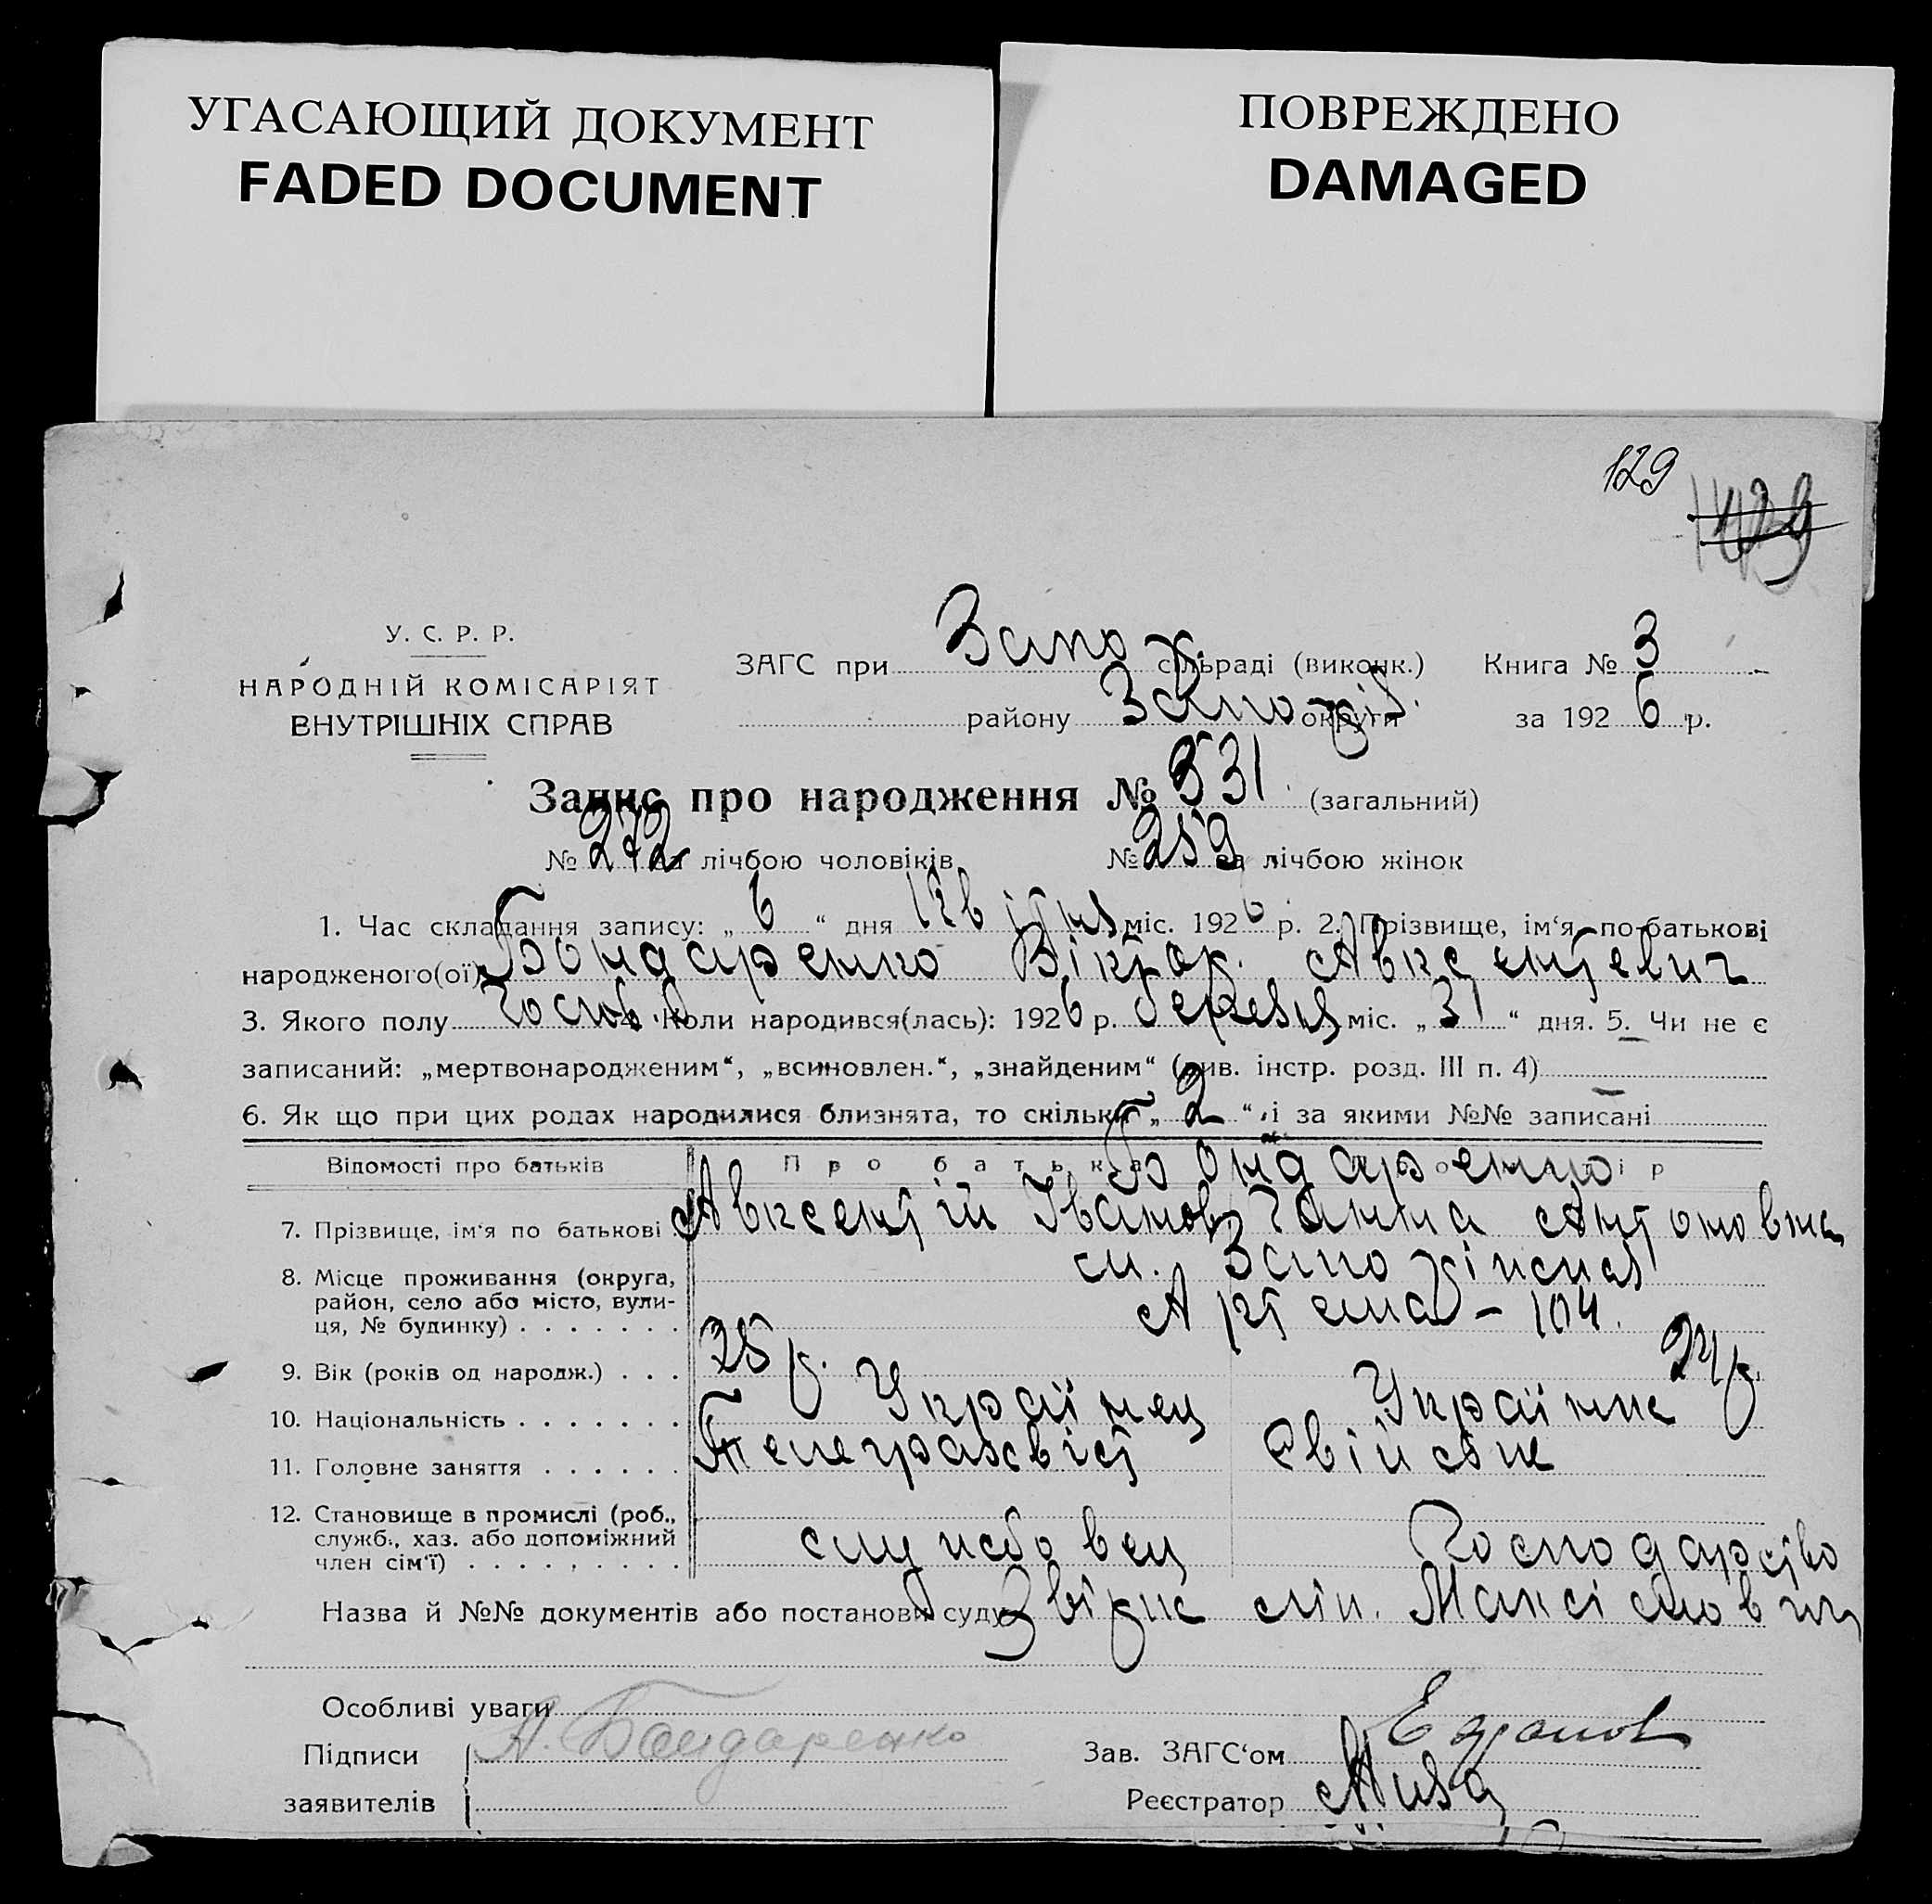 УГАСАЮЩИЙ ДОКУМЕНТ
FADED DOCUMENT
ПОВРЕЖДЕНО
DAMAGED
129
У. С. Р. Р.
НАРОДНІЙ КОМІСАРІЯТ
ВНУТРІШНІХ СПРАВ
ЗАГС при Запо сільраді (виконк.) Книга № 3
району Запоріз. округи за 192 6 р.
Запис про народження № 531 (загальний)
№ 272 за лічбою чоловіків № 259 за лічбою жінок
1. Час складання запису: „ 6 “ дня квітня міс. 192 6 р. 2. Прізвище, ім‘я, по-батькові
народженого(ої) Бондаренко Віктор. Авксентевич
3. Якого полу Чолов. 4. Коли народився(лась): 192 6 р. березня міс. „ 31 “ дня. 5. Чи не є
записаний: „мертвонародженим“, „всиновлен.“, „знайденим“ (див. інстр. розд. III п. 4) —
6. Як що при цих родах народилися близнята, то скільки „ 2 “ і за якими №№ записані
Відомості про батьків Про батька Бондаренко
7. Прізвище, ім‘я по батькові Авксентій Іванов Ганна Антоновна
8. Місце проживання (округа, район, село або місто, вулиця, № будинку) . . . . . . . м.
Артема – 104.
9. Вік (років од народж.) . . . 28 р. 24 р.
10. Національність . . . . . . . Українец Українка
11. Головне заняття . . . . . . Телеграфвіст
12. Становище в промислі (роб., служб., хаз. або допоміжний член сім‘ї) . . . . . . . . . службовец Господарство
Назва й №№ документів або постанови суду
Особливі уваги
Підписи А. Бондаренко Зав. ЗАГС‘ом
заявителів Реєстратор